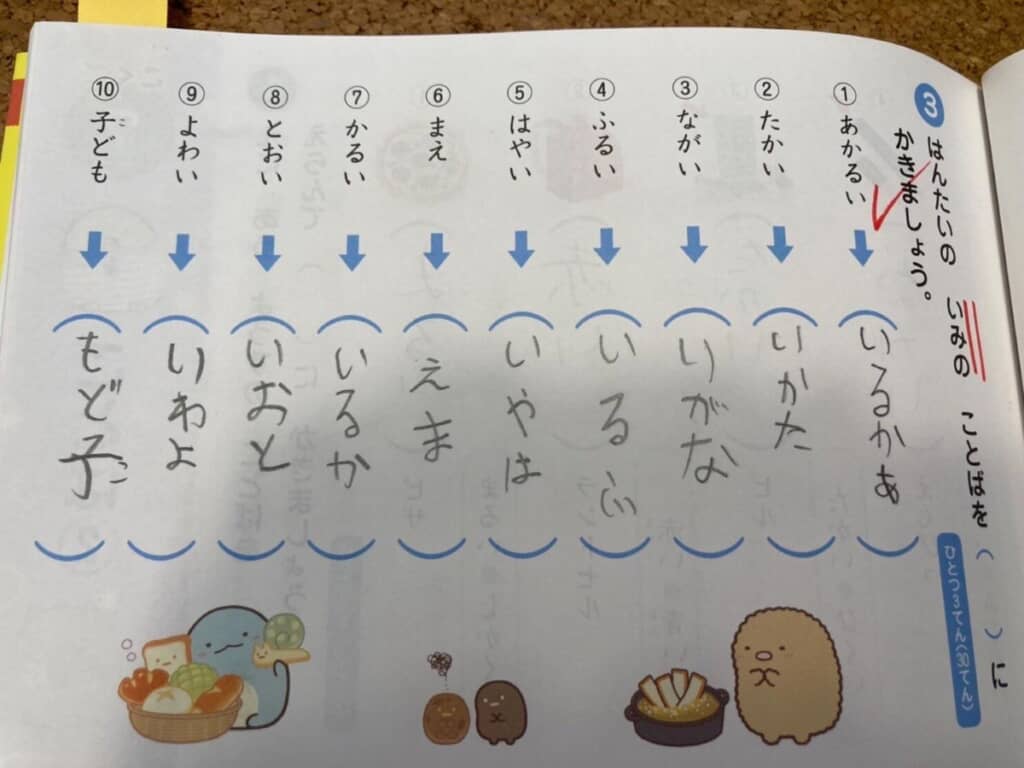 3
はんたいの いみの ことばを ( )に
かきましょう。
ひとつ3てん(30てん)
① あかるい
いるかあ
② たかい
いかた
③ ながい
いがな
④ ふるい
いるふ
⑤ はやい
いやは
⑥ まえ
えま
⑦ かるい
いるか
⑧ とおい
いおと
⑨ よわい
いわよ
⑩ 子ども
こ
もど子
こ